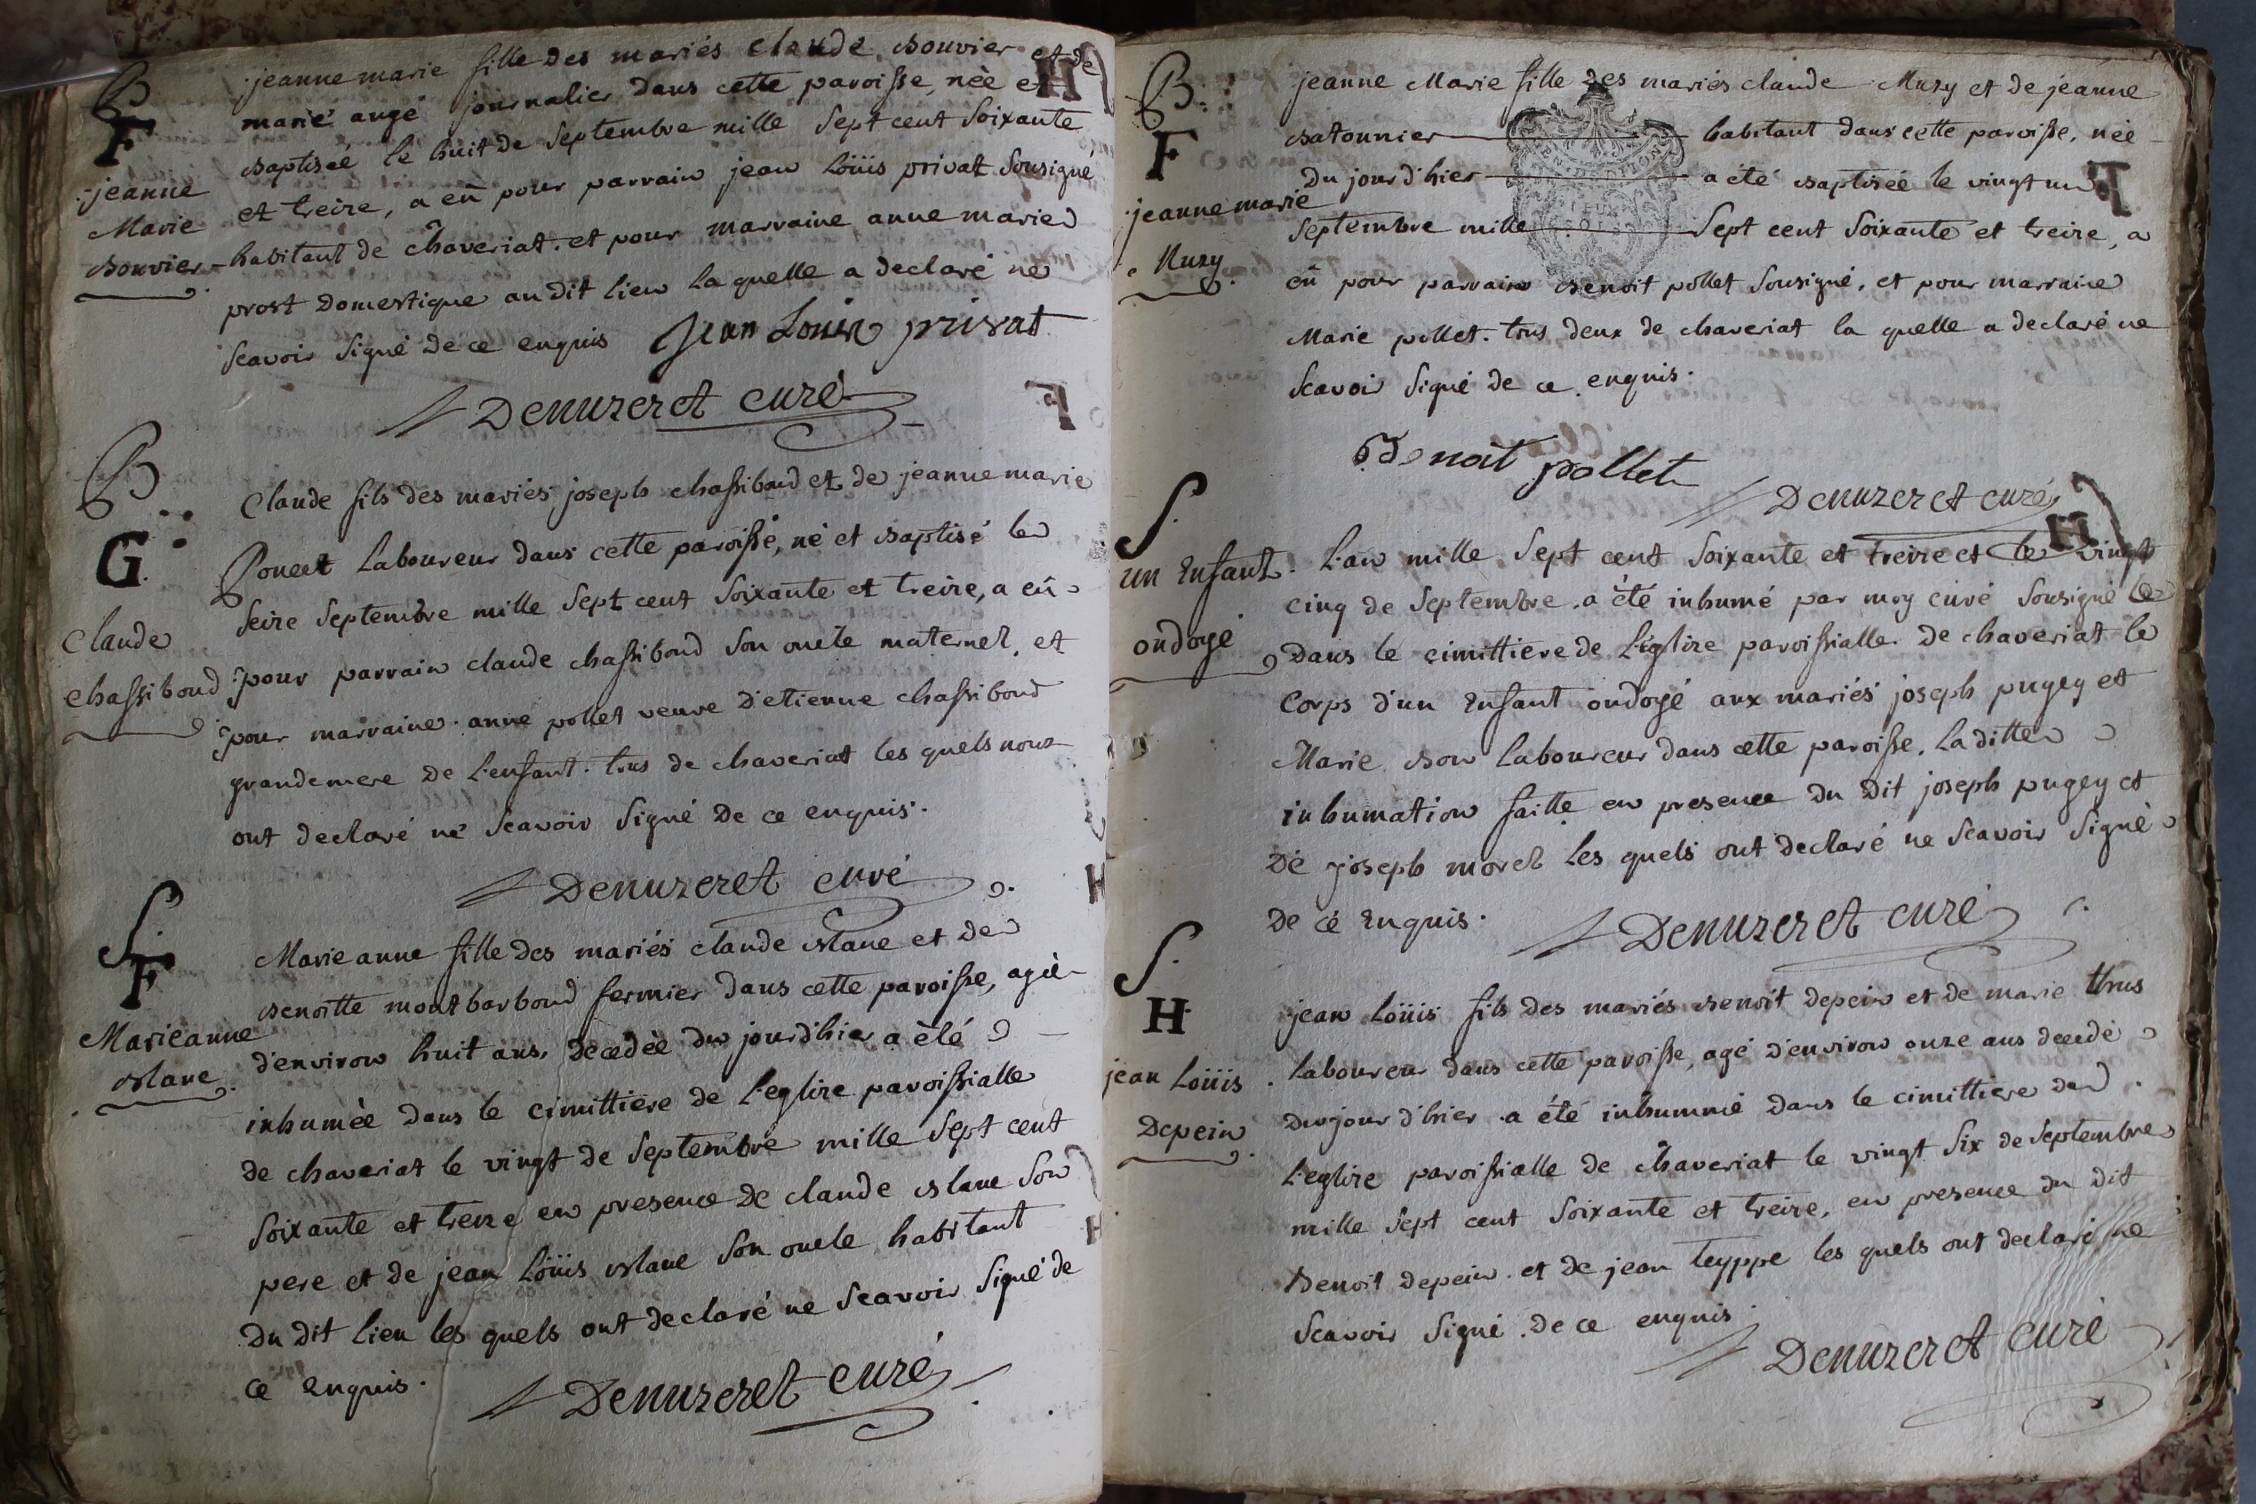 B
F
jeanne
Marie
Bouvier
jeanne marie fille des mariés claude Bouvier et de
marie angé journalier dans cette paroisse, née et
Baptiseé le huit de Septembre mille Sept cent Soixante
et treize, a eû pour parrain jean Loüis privat Sousigné
habitant de Chaveriat. et pour marraine anne marie
prost Domestique au dit lieu la quelle a declaré ne
Scavoir Signé de ce enquis Jean Louis privat
Denuzeret curé
B
G.
Claude
Chassiboud
Claude fils des mariés joseph chassiboud et de jeanne marie
Poncet Laboureur dans cette paroisse, né et Baptisé le
Seize Septembre mille Sept cent Soixante et treize, a eû
pour parrain claude chassiboud Son oncle maternel, et
pour marraine. anne pollet veuve d'etienne chassiboud
grandemere de L'enfant. tous de chaveriat les quels nous
ont declaré ne Scavoir Signé De ce enquis.
Denuzeret curé
S.
F
Marieanne
Blanc
Marie anne fille des mariés claude Blanc et de
Benoitte montbarboud fermier dans cette paroisse, agée
d'environ huit ans, decedèe du jourd'hier a été
inhumèe dans le cimittiere de L'eglise paroissialle
de chaveriat le vingt de Septembre mille Sept cent
Soixante et treize en presence de claude Blanc Son
pere et de jean Loüis Blanc Son oncle habitant
Du dit lieu les quels ont declaré ne Scavoir Signé de
ce enquis.
Denuzeret curé
B
F
jeanne marie
Muzy
jeanne Marie fille des mariés claude Muzy et de jeanne
Batonnier habitant dans cette paroisse, neè
Du jour d'hier a été Baptisée le vingt un
Septembre mille Sept cent Soixante et treize, a
eû pour parrain Benoit pollet Sousigné, et pour marraine
Marie pollet. tous deux de chaveriat la quelle a declaré ne
Scavoir Signé de ce enquis.
Benoit pollet
Denuzeret curé
S.
un Enfant
ondoyé
L'an mille Sept cent Soixante et treize et le vingt
cinq de Septembre a été inhumé par moy curé Sousigné
Dans le cimittiere de L'eglise paroissialle De chaveriat le
Corps d'un Enfant ondoyé aux mariés joseph pugey et
Marie Bon Laboureur dans cette paroisse. La ditte
inhumation faitte en presence Du Dit joseph pugey et
De joseph morel les quels ont declaré ne Scavoir Signé
De cé Enquis.
Denuzeret curé
S.
H.
jean Loüis
Depein
jean Loüis fils des mariés Benoit Depein et de marie
Laboureur dans cette paroisse, agé d'environ onze ans decedé
Du jour d'hier a été inhummé dans le cimittiere de
L'eglise paroissialle de chaveriat le vingt Six de Septembre
mille Sept cent Soixante et treize, en presence du dit
Benoit Depein. et de jean teyppe les quels ont declaré ne
Scavoir Signé de ce enquis
Denuzeret curé